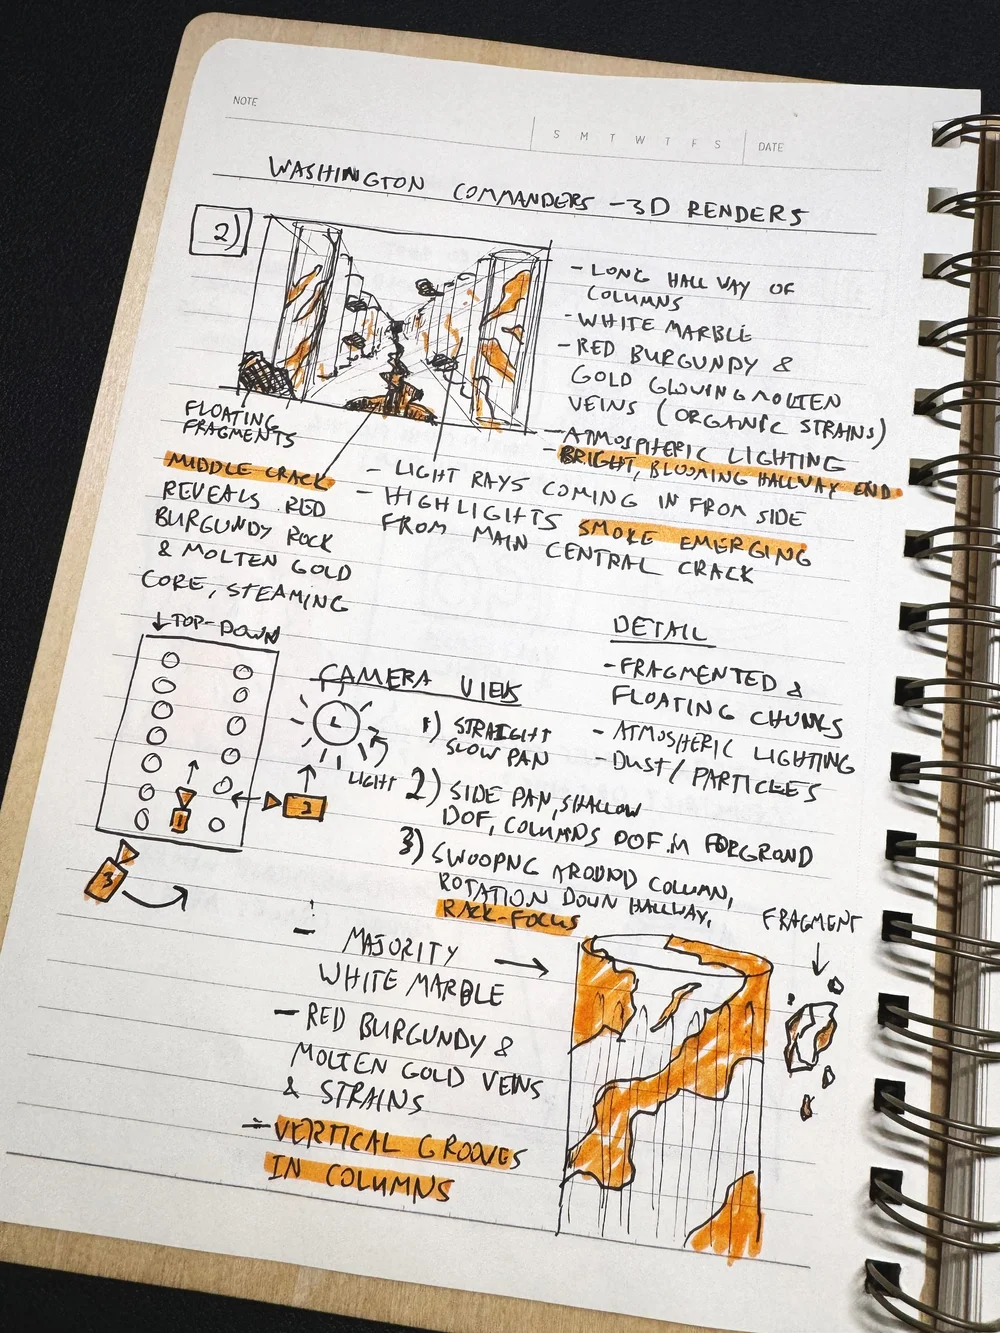 NOTE
S M T W T F S
DATE
WASHINGTON COMMANDERS - 3D RENDERS
2)
- LONG HALLWAY OF
COLUMNS
- WHITE MARBLE
- RED BURGUNDY &
GOLD GLOWING MOLTEN
VEINS (ORGANIC STRAINS)
- ATMOSPHERIC LIGHTING
- BRIGHT, BLOOMING HALLWAY END
FLOATING
FRAGMENTS
MIDDLE CRACK
REVEALS RED
BURGUNDY ROCK
& MOLTEN GOLD
CORE, STEAMING
- LIGHT RAYS COMING IN FROM SIDE
- HIGHLIGHTS SMOKE EMERGING
FROM MAIN CENTRAL CRACK
↓ TOP-DOWN
1
2
3
LIGHT
CAMERA VIEWS
1) STRAIGHT
SLOW PAN
2) SIDE PAN, SHALLOW
DOF, COLUMNS DOF IN FORGROND
3) SWOOPNG AROUND COLUMN,
ROTATION DOWN HALLWAY,
RACK-FOCUS
DETAIL
- FRAGMENTED &
FLOATING CHUNKS
- ATMOSPHERIC LIGHTING
- DUST / PARTICLES
FRAGMENT
- MAJORITY
WHITE MARBLE
- RED BURGUNDY &
MOLTEN GOLD VEINS
& STRAINS
- VERTICAL GROOVES
IN COLUMNS